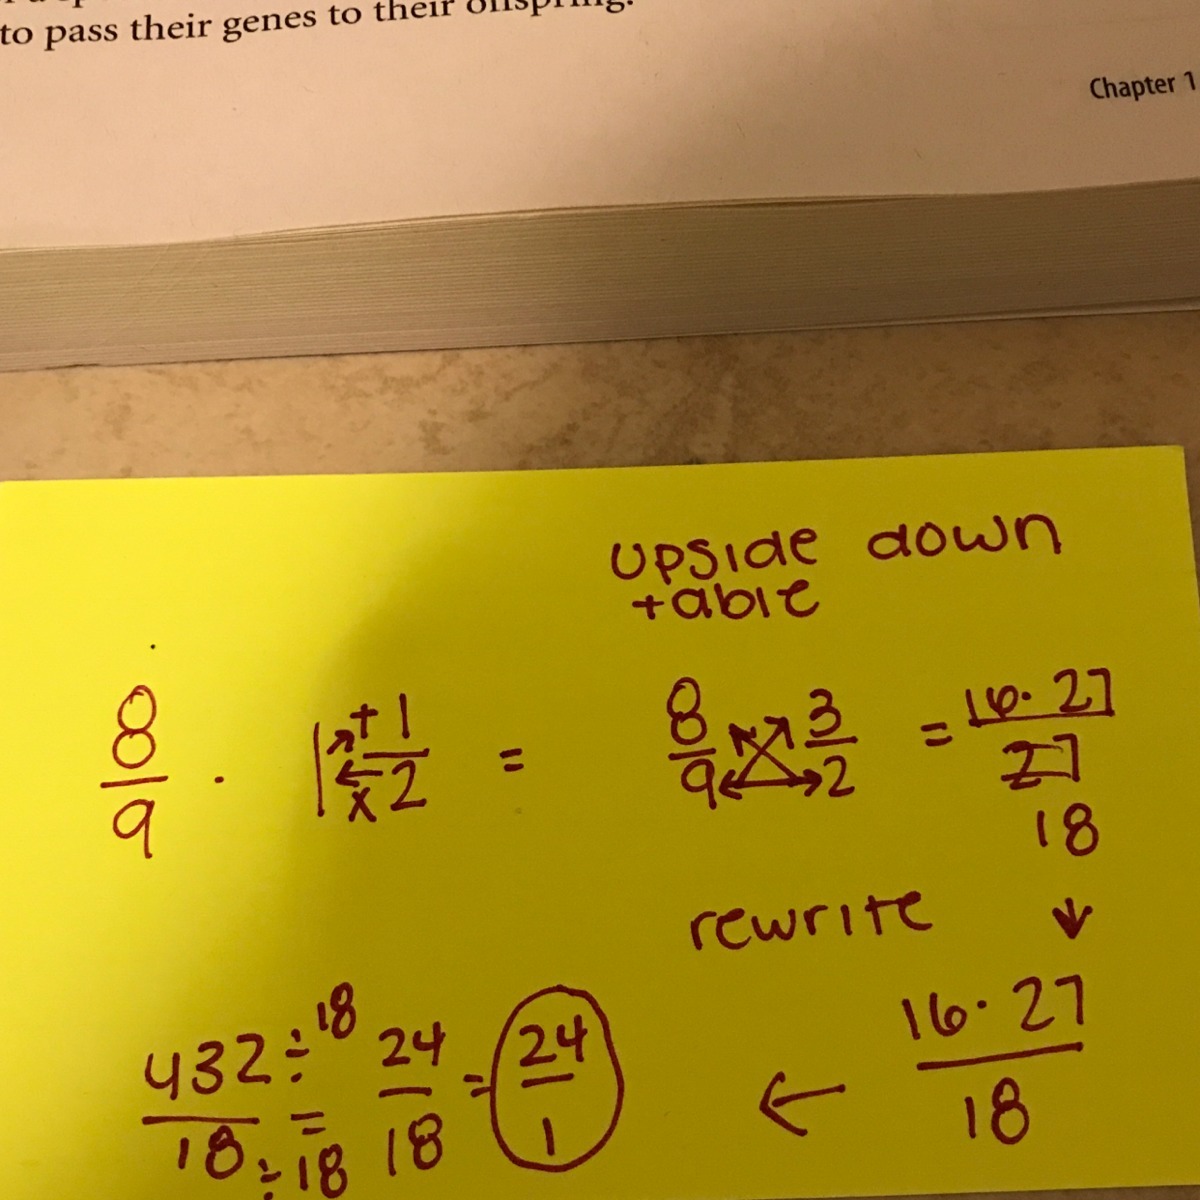 to pass their genes to their offspring.
Chapter 1
upside down
table
8/9 · 1 +1/×2 = 8/9 3/2 = 16·27/27
18
rewrite ↓
16·27/18
←
432/18 ÷18/÷18 = 24/18 = 24/1